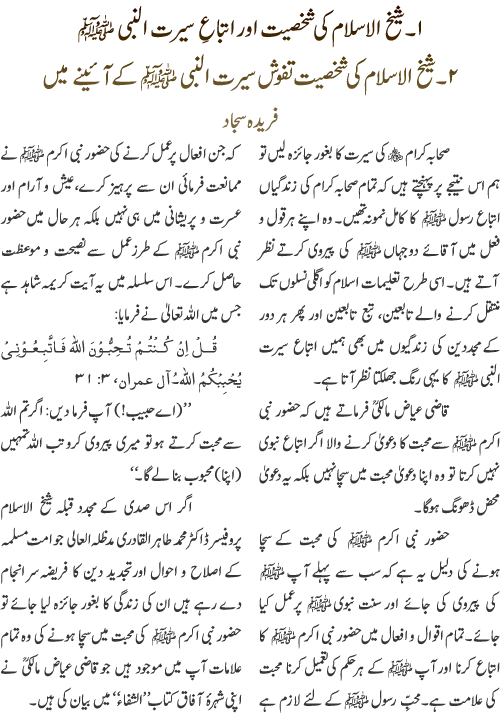 ۱۔ شیخ الاسلام کی شخصیت اور اتباعِ سیرت النبی ﷺ
۲۔ شیخ الاسلام کی شخصیت نقوش سیرت النبی ﷺ کے آئینے میں
فریدہ سجاد
صحابہ کرام ؓ کی سیرت کا بغور جائزہ لیں تو
ہم اس نتیجے پر پہنچتے ہیں کہ تمام صحابہ کرام کی زندگیاں
اتباع رسول ﷺ کا کامل نمونہ تھیں۔ وہ اپنے ہر قول و
فعل میں آقائے دو جہاں ﷺ کی پیروی کرتے نظر
آتے ہیں۔ اسی طرح تعلیمات اسلام کو اگلی نسلوں تک
منتقل کرنے والے تابعین، تبع تابعین اور پھر ہر دور
کے مجددین کی زندگیوں میں بھی ہمیں اتباع سیرت
النبی ﷺ کا یہی رنگ جھلکتا نظر آتا ہے۔
قاضی عیاض مالکیؒ فرماتے ہیں کہ حضور نبی
اکرم ﷺ سے محبت کا دعویٰ کرنے والا اگر اتباع نبوی
نہیں کرتا تو وہ اپنا دعویٰ محبت میں سچا نہیں بلکہ یہ دعویٰ
محض ڈھونگ ہوگا۔
حضور نبی اکرم ﷺ کی محبت کے سچا
ہونے کی دلیل یہ ہے کہ سب سے پہلے آپ ﷺ
کی پیروی کی جائے اور سنت نبوی ﷺ پر عمل کیا
جائے۔ تمام اقوال و افعال میں حضور نبی اکرم ﷺ کا
اتباع کرنا اور آپ ﷺ کے ہر حکم کی تعمیل کرنا محبت
کی علامت ہے۔ محبّ رسول ﷺ کے لئے لازم ہے
کہ جن افعال پر عمل کرنے کی حضور نبی اکرم ﷺ نے
ممانعت فرمائی ان سے پرہیز کرے، عیش و آرام اور
عسرت و پریشانی میں ہی نہیں بلکہ ہر حال میں حضور
نبی اکرم ﷺ کے طرز عمل سے نصیحت و موعظت
حاصل کرے۔ اس سلسلہ میں یہ آیت کریمہ شاہد ہے
جس میں اللہ تعالیٰ نے فرمایا:
قُلْ اِنْ كُنْتُمْ تُحِبُّوْنَ اللهَ فَاتَّبِعُوْنِیْ
يُحْبِبْكُمُ اللهُ۔ آل عمران، ۳: ۳۱
’’(اے حبیب!) آپ فرما دیں: اگر تم اللہ
سے محبت کرتے ہو تو میری پیروی کرو تب اللہ تمہیں
(اپنا) محبوب بنا لے گا۔‘‘
اگر اس صدی کے مجدد قبلہ شیخ الاسلام
پروفیسر ڈاکٹر محمد طاہر القادری مدظلہ العالی جو امت مسلمہ
کے اصلاح و احوال اور تجدید دین کا فریضہ سر انجام
دے رہے ہیں ان کی زندگی کا بغور جائزہ لیا جائے تو
حضور نبی اکرم ﷺ کی محبت میں سچا ہونے کی وہ تمام
علامات آپ میں موجود ہیں جو قاضی عیاض مالکیؒ نے
اپنی شہرۂ آفاق کتاب ’’الشفاء‘‘ میں بیان کی ہیں۔